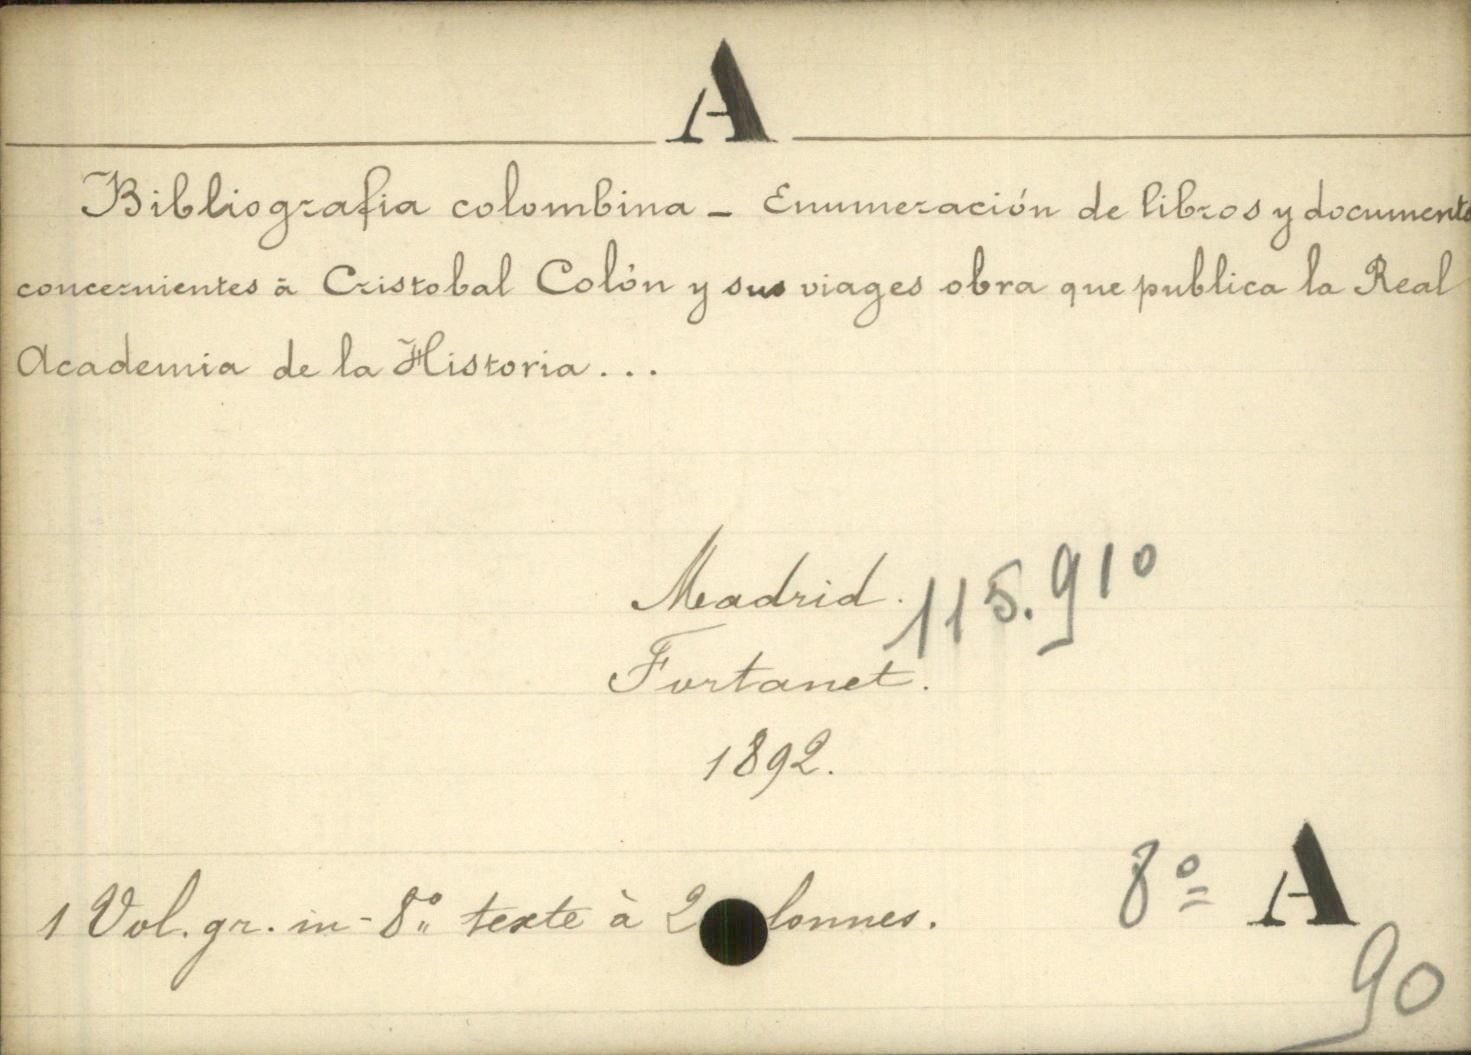 A
Bibliografia colombina - Enumeración de libros y documents
concernientes à Cristobal Colón y sus viages obra que publica la Real
Academia de la Historia...
Madrid. 115.910
Fortanet.
1892.
1 Vol. gr. in-8º texte à 2 lonnes.
8º A
90